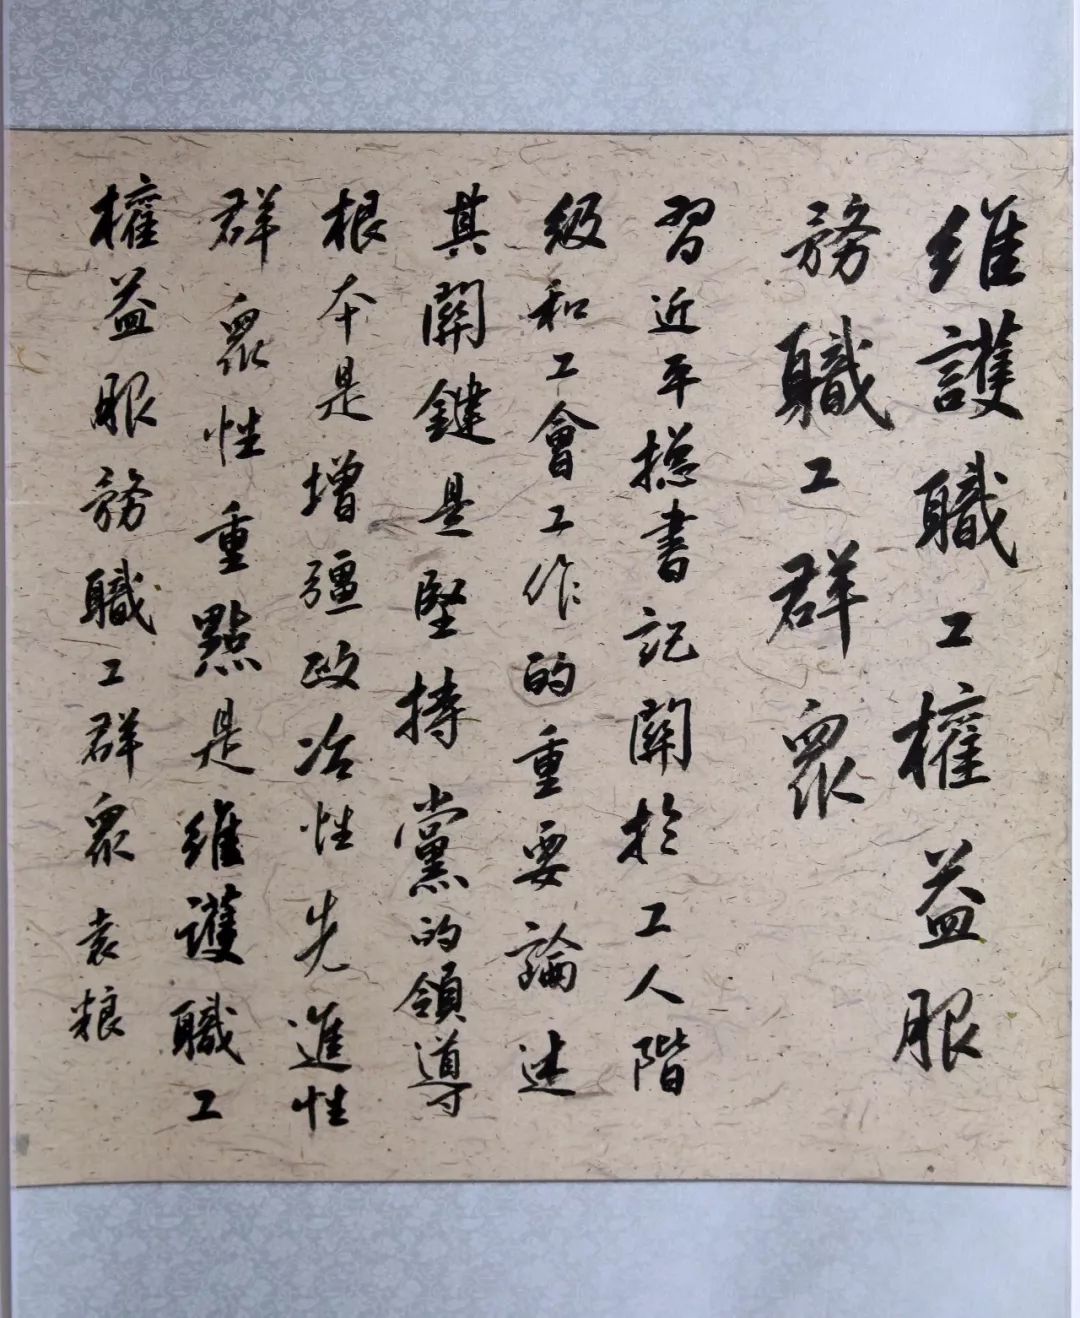 維護職工權益服
務職工群衆
習近平總書記關於工人階
級和工會工作的重要論述
其關鍵是堅持黨的領導
根本是增彊政治性先進性
群衆性重點是維護職工
權益服務職工群衆 袁粮